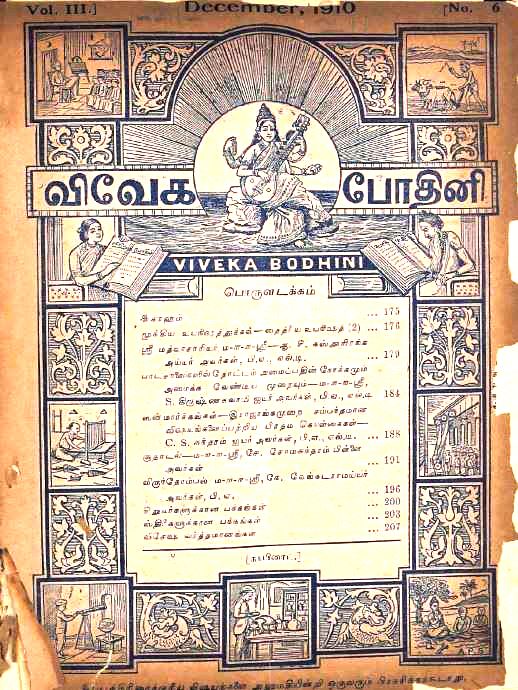 Vol. III.] December, 1910 [No. 6
விவேக போதினி
VIVEKA BODHINI
பொருளடக்கம்
... 175
முக்கிய உபநிஷத்துக்கள்—தைத்ரீய உபநிஷத் (2) ... 176
ஸ்ரீ மத்வாசாரியார் ம-ா-ா-ஸ்ரீ—
அய்யர் அவர்கள், பி.ஏ., எல்.டி. ... 179
பாடசாலைகளில் தோட்டம் அமைப்பதின் நோக்கமும்
அமைக்க வேண்டிய முறையும்—ம-ா-ா-ஸ்ரீ,
S. கிருஷ்ணசுவாமி ஐயர் அவர்கள், பி.ஏ., எல்.டி. 184
ஸன்மார்க்கங்கள்—இராஜாங்கமுறை சம்பந்தமான
விஷயங்களைப்பற்றிய பிரதம கொள்கைகள்—
C. S. சுந்தரம் ஐயர் அவர்கள், பி.ஏ., எல்.டி. ... 188
சூதாடல்—ம-ா-ா-ஸ்ரீ, சே. சோமசுந்தரம் பிள்ளை
அவர்கள் ... 191
விருந்தோம்பல் ம-ா-ா-ஸ்ரீ, கே. வேங்கடராமய்யர்
அவர்கள், பி. ஏ. ... 196
சிறுவர்களுக்கான பக்கங்கள் ... 200
ஸ்திரீகளுக்கான பக்கங்கள் ... 203
விசேஷ வர்த்தமானங்கள் ... 207
விஷயங்களை அனுமதியின்றி ஒருவரும் பிரசுரிக்கக்கூடாது.